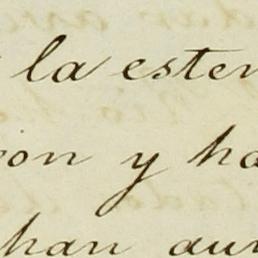 la esten
ion y ha
han aun